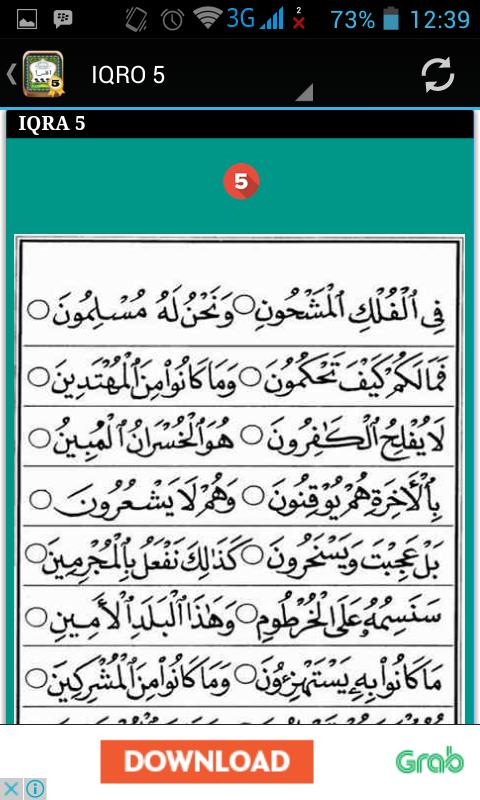 3G 2 73% 12:39
IQRO 5
IQRA 5
5
فِي الْفُلْكِ الْمَشْحُونِ ○ وَنَحْنُ لَهُ مُسْلِمُونَ ○
فَمَالَكُمْ كَيْفَ تَحْكُمُونَ ○ وَمَا كَانُوا مِنَ الْمُهْتَدِينَ ○
لَا يُفْلِحُ الْكَافِرُونَ ○ هُوَ الْخُسْرَانُ الْمُبِينُ ○
بِالْأَخِرَةِ هُمْ يُوْقِنُونَ ○ وَهُمْ لَا يَشْعُرُونَ ○
بَلْ عَجِبْتَ وَيَسْخَرُونَ ○ كَذَالِكَ نَفْعَلُ بِالْمُجْرِمِينَ ○
سَنَسِمُهُ عَلَى الْخُرْطُومِ ○ وَهَذَا الْبَلَدِ الْأَمِينِ ○
مَا كَانُوا بِهِ يَسْتَهْزِءُونَ ○ وَمَا كَانُوا مِنَ الْمُشْرِكِينَ ○
DOWNLOAD
Grab